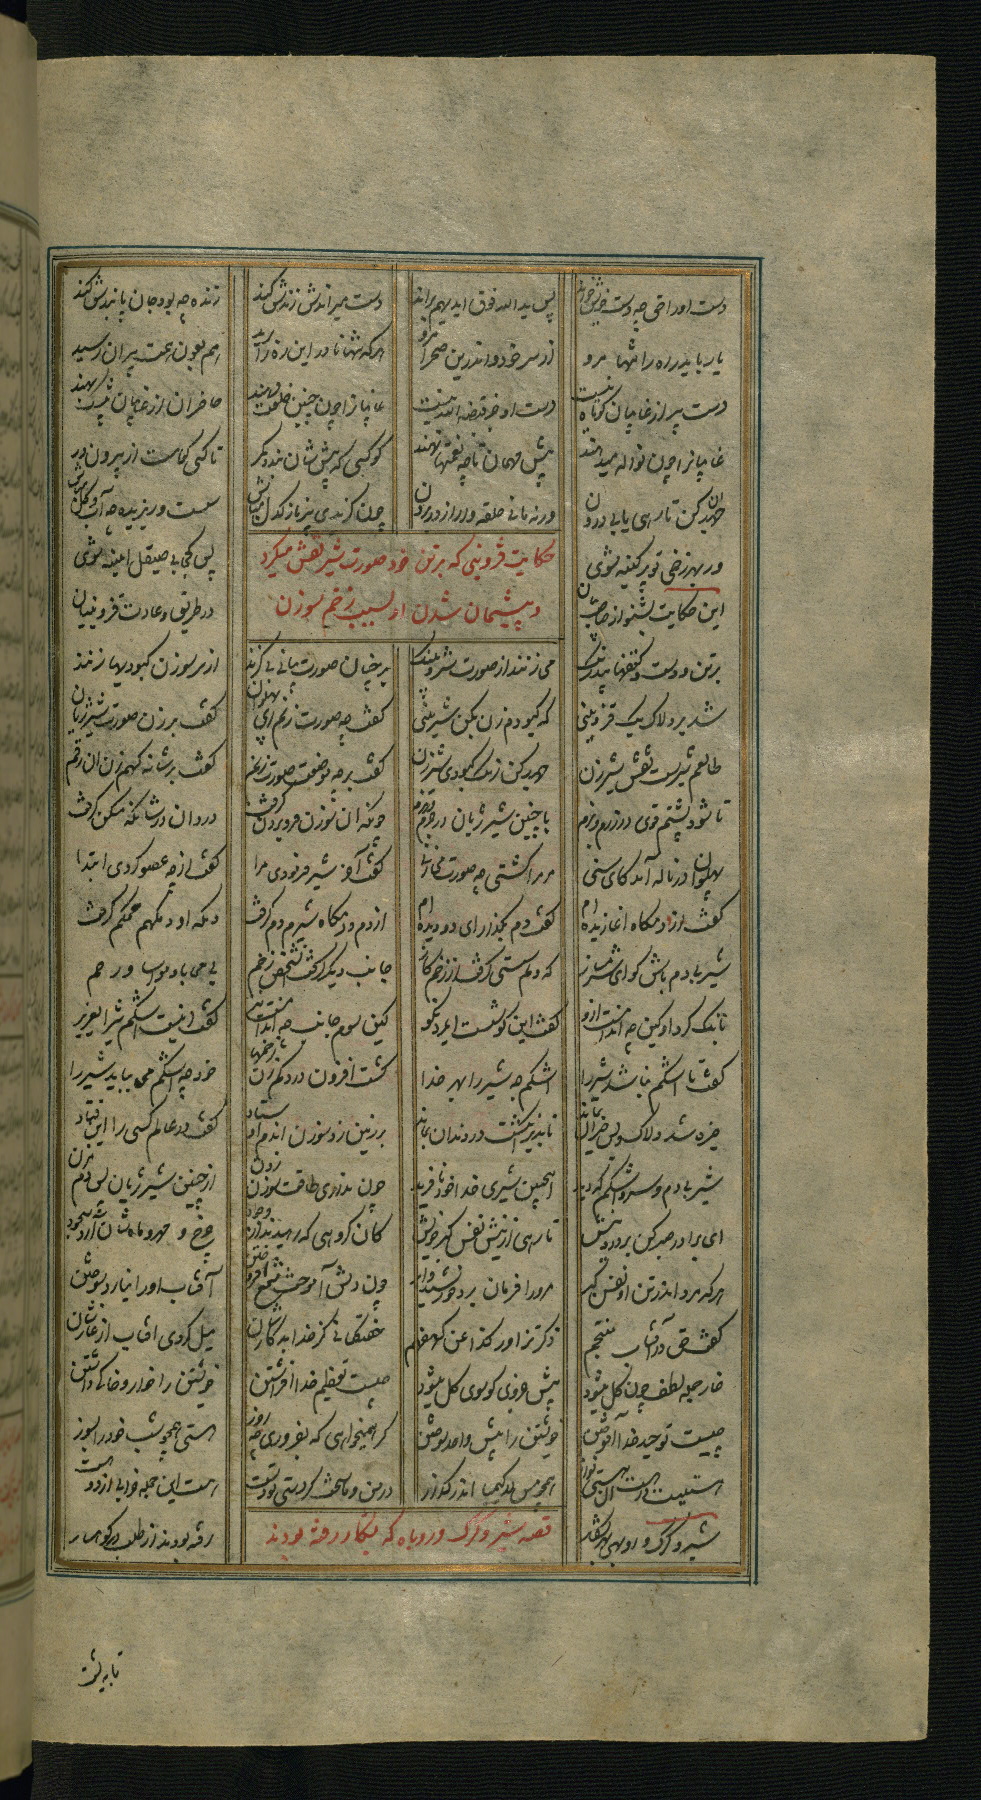 دست او را حق چو دست خویش خواند پس ید الله فوق ایدیهم براند دست میراندش زندش کند زنده چه بود جان پایندش کند
یار باید راه را تنها مرو از سر خود اندرین صحرا مرو هرکه تنها نادر این ره را برید هم بعون همت پیران رسید
دست پیر از غایبان کوتاه نیست دست او جز قبضه الله نیست غایبانرا چون چنین خلعت دهند حاضران از غایبان بهند
غایبانرا چون نواله میدهند پیش مهمان تا چه نعمتها نهند کو کسی که پیش شان بندد کمر تا کسی کماست از بیرون در
جهد کن تا رهی یابی درون ورنه مانی حلقه وار از در برون چون گزیدی پیر نازکدل مباش سست و ریزیده چو آب و گل مباش
ور بهر زخمی تو پر کینه شوی پس کجا بی صیقل آیینه شوی
حکایت قزوینی که بر تن خود صورت شیر نقش میکرد
و پشیمان شدن او بسبب زخم سوزن
این حکایت بشنو از صاحب بیان در طریق و عادت قزوینیان
برتن و دست و کتفها بیدرنگ می زنند از صورت شیر و پلنگ بر چنان صورت پیاپی بی گزند از سر سوزن کبودیها زنند
شد بر دلاک یک قزوینی که کبودم زن بکن شیرینی گفت چه صورت زنم ای پهلوان گفت برزن صورت شیر ژیان
طالعم شیرست نقش شیر زن جهد کن رنگ کبودی سیر زن گفت بر چه موضعت صورت زنم گفت بر شانه گهم زن آن رقم
تا شود پشتم قوی در رزم و بزم با چنین شیر ژیان در عزم جزم چونکه آن سوزن فرو بردن گرفت درد آن در شانگه مسکن گرفت
پهلوان در ناله آمد کای سنی مر مرا کشتی چه صورت می زنی گفت آخر شیر فرمودی مرا گفت از چه عضو کردی ابتدا
گفت از دمگاه آغازیده ام گفت دم بگذار ای دو دیده ام از دم و دمگاه شیرم دم گرفت دمگه او دمگهم محکم گرفت
شیر بی دم باش گو ای شیرساز که دلم سستی گرفت از زخم گاز جانب دیگر گرفت آن شخص زخم بی محابا و مواسا و رحم
بانگ کرد او کین چه اندامست ازو گفت این گوشست ای مرد نکو کین سوم جانب چه اندامست نیز گفت اینست اشکم شیر ای عزیز
گفت تا اشکم نباشد شیر را اشکم چه شیر را بهر خدا گشت افزون درد کم زن زخمها خود چه اشکم می بباید شیر را
خیره شد دلاک و بس حیران بماند تا بدیر انگشت در دندان بماند بر زمین زد سوزن آندم اوستاد گفت در عالم کسی را این فتاد
شیر بی دم و سر و اشکم که دید اینچنین شیری خدا خود نافرید چون نداری طاقت سوزن زدن از چنین شیر ژیان بس دم مزن
ای برادر صبر کن بر درد نیش تا رهی از نیش نفس گبر خویش کان گروهی که رهیدند از وجود چرخ و مهر و ماه شان آرد سجود
هرکه مرد اندر تن او نفس گبر مرورا فرمان برد خورشید و ابر چون دلش آموخت شمع افروختن آفتاب او را نیارد سوختن
گفت حق در آفتاب منتجم ذکر تزاور کذا عن کهفهم خفتگانی کز خدا بد کارشان میل کردی آفتاب از غارشان
خار جمله لطف چون گل میشود پیش جزوی کو سوی کل میشود چیست تعظیم خدا افراشتن خویشتن را خوار و خاکی داشتن
چیست توحید خدا آموختن خویشتن را پیش واحد سوختن گر همیخواهی که بفروزی چو روز هستی همچو شب خود را بسوز
هستیت در هست آن هستی نواز همچو مس در کیمیا اندر گداز در من و ما سخت کردستی دو دست هست این جمله خرابی از دو هست
قصه شیر و گرگ و روباه که بشکار رفته بودند
شیر و گرگ و روبهی بهر شکار رفته بودند از طلب در کوهسار
تا به پشت